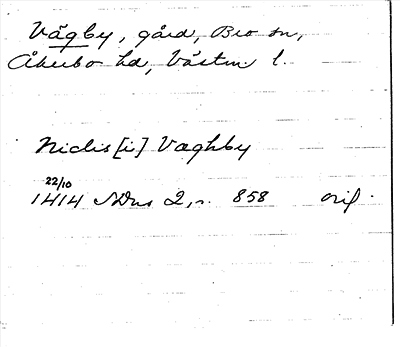 Vägby, gård, Bro sn,
Åkerbo hd, Västm. l.
Niclis [i] Væghby
22/10
1414 SDns 2, s. 858 orig.